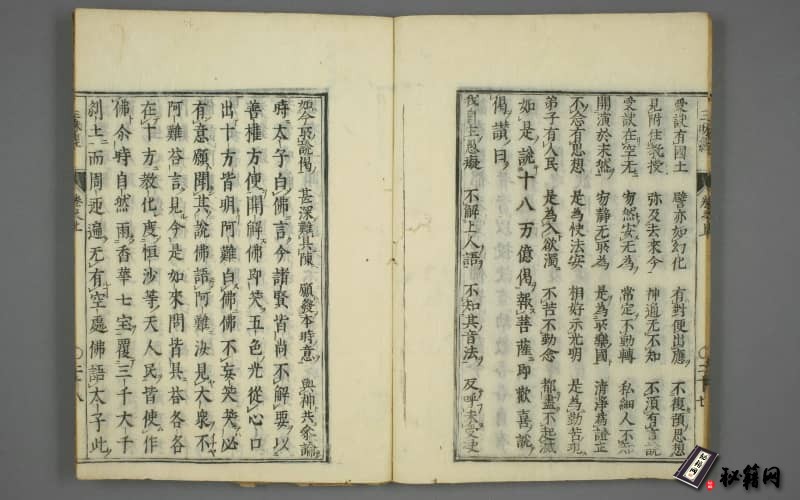 受訣有國土 譬亦如幻化 有對便出應 不復 思想
見附住教授 弥及去來今 神通无不知 不須有言說
受訣在空无 忽然安无為 常定不動轉 私細人不
開演於未然 静无所為 是為所樂國 清淨為證正
不念有思想 是為使法安 相好示光明 是為勤苦現
弟子有人民 是為入欲濁 不苦不動念 都盡不起滅
如是說十八万億偈報菩薩即歡喜說
偈讃曰
我自上愚癡 不解上人語 不知其音法 反呼未受
如今所說偈 甚深難具陳 願發本時意 與神共參論
時太子白佛言今諸賢皆尚不解要以
善權方便開解佛即笑五色光從心口
出十方皆明阿難白佛佛不妄笑笑必
有意願聞其說佛語阿難汝見大衆不
阿難荅言見今是如來問皆具荅各各
在十方教化度恒沙等天人民皆使作
佛尒時自然雨香華七宝覆三千大千
刹土而周迊遍无有空處佛語太子此
秘籍网